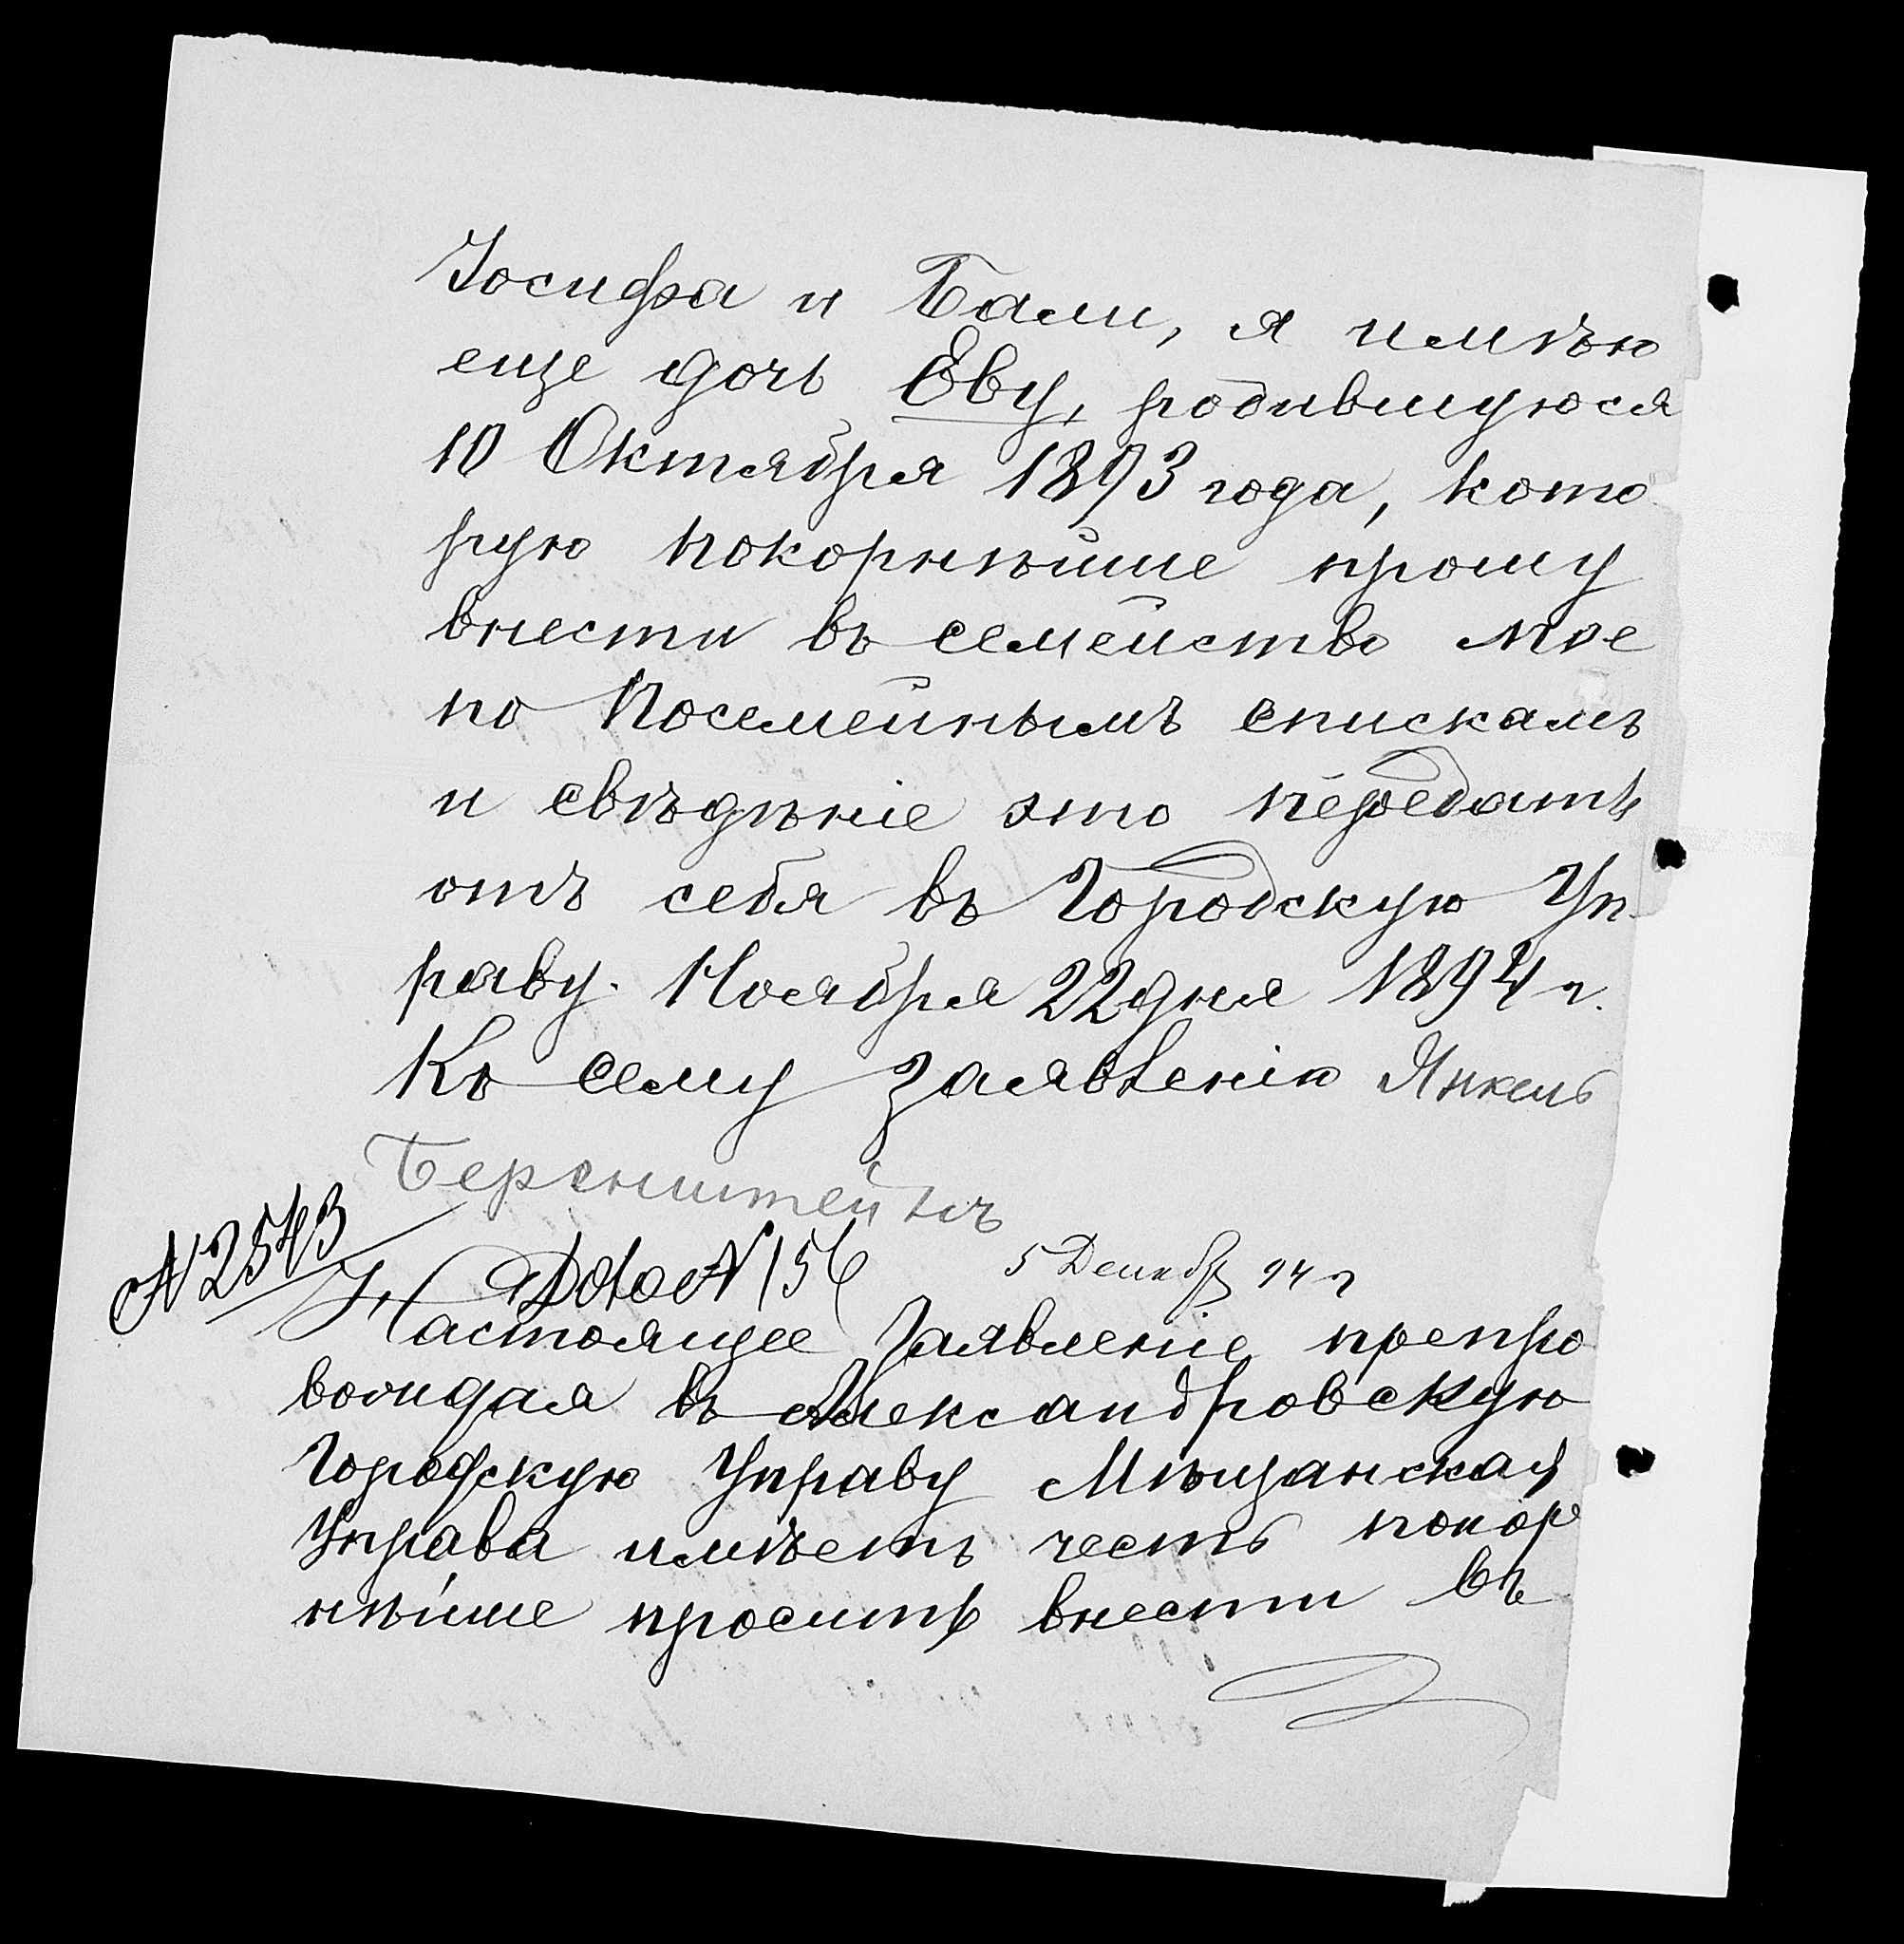 Іосифа и Бали, я имѣю
еще дочь Еву, родившуюся
10 Октября 1893 года, кото
рую покорнѣйше прошу
внести въ семейство мое
по Посемейнымъ спискамъ
и свѣдѣніе это передать
отъ себя въ Городскую Уп-
раву. Ноября 22 дня 1894 г.
Къ сему заявленію Янкель
Беренштейнъ
N 2543
N 156
5 Декабр 94 г
Настоящее Заявленіе препро
вождая въ Александровскую
Городскую Управу Мѣщанская
Управа имѣетъ честь покор
нѣйше просить внести въ